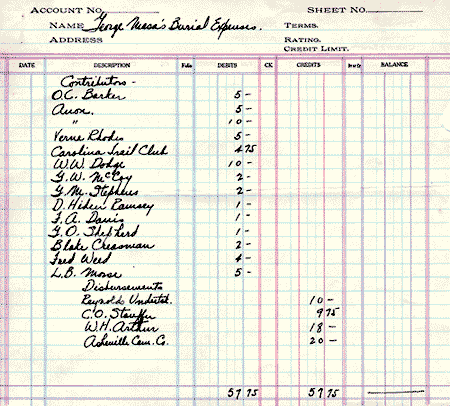 ACCOUNT NO. SHEET NO.
NAME George Masa's Burial Expenses. TERMS.
ADDRESS RATING.
CREDIT LIMIT.
DATE DESCRIPTION Folio DEBITS CK. CREDITS BALANCE
Contributors -
O.C. Barker 5 -
Anon. 5 -
" 10 -
Verne Rhodes 5 -
Carolina Trail Club 4 75
W.W. Dodge 10 -
G.W. McCoy 2 -
G.M. Stephens 2 -
D. Hiden Ramsey 1 -
F.A. Davis 1 -
G.O. Shepherd 1 -
Blake Creasman 2 -
Fred Weed 4 -
L.B. Morse 5 -
Disbursements
Reynolds Undertak. 10 -
C.O. Stauffer 9 75
W.H. Arthur 18 -
Asheville Cem. Co. 20 -
57 75 57 75